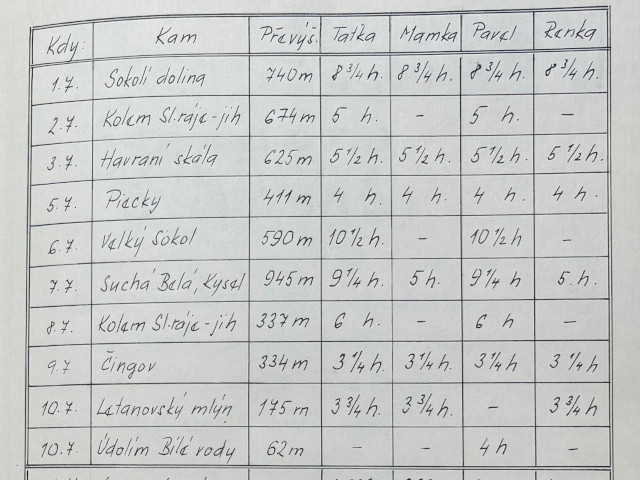 Kdy: Kam Převýš. Taťka Mamka Pavel Renka
1.7. Sokolí dolina 740 m 8 3/4 h. 8 3/4 h. 8 3/4 h. 8 3/4 h.
2.7. Kolem Sl.ráje-jih 674 m 5 h. - 5 h. -
3.7. Havraní skála 625 m 5 1/2 h. 5 1/2 h. 5 1/2 h. 5 1/2 h.
5.7. Piecky 411 m 4 h. 4 h. 4 h. 4 h.
6.7. Velký Sokol 590 m 10 1/2 h. - 10 1/2 h -
7.7. Suchá Belá, Kysel 945 m 9 1/4 h. 5 h. 9 1/4 h 5. h.
8.7. Kolem Sl.ráje-jih 337 m 6 h. - 6 h -
9.7 Čingov 334 m 3 1/4 h. 3 1/4 h. 3 1/4 h 3 1/4 h
10.7. Letanovský mlýn 175 m 3 3/4 h. 3 3/4 h. - 3 3/4 h
10.7. Údolím Bílé vody 62 m - - 4 h -